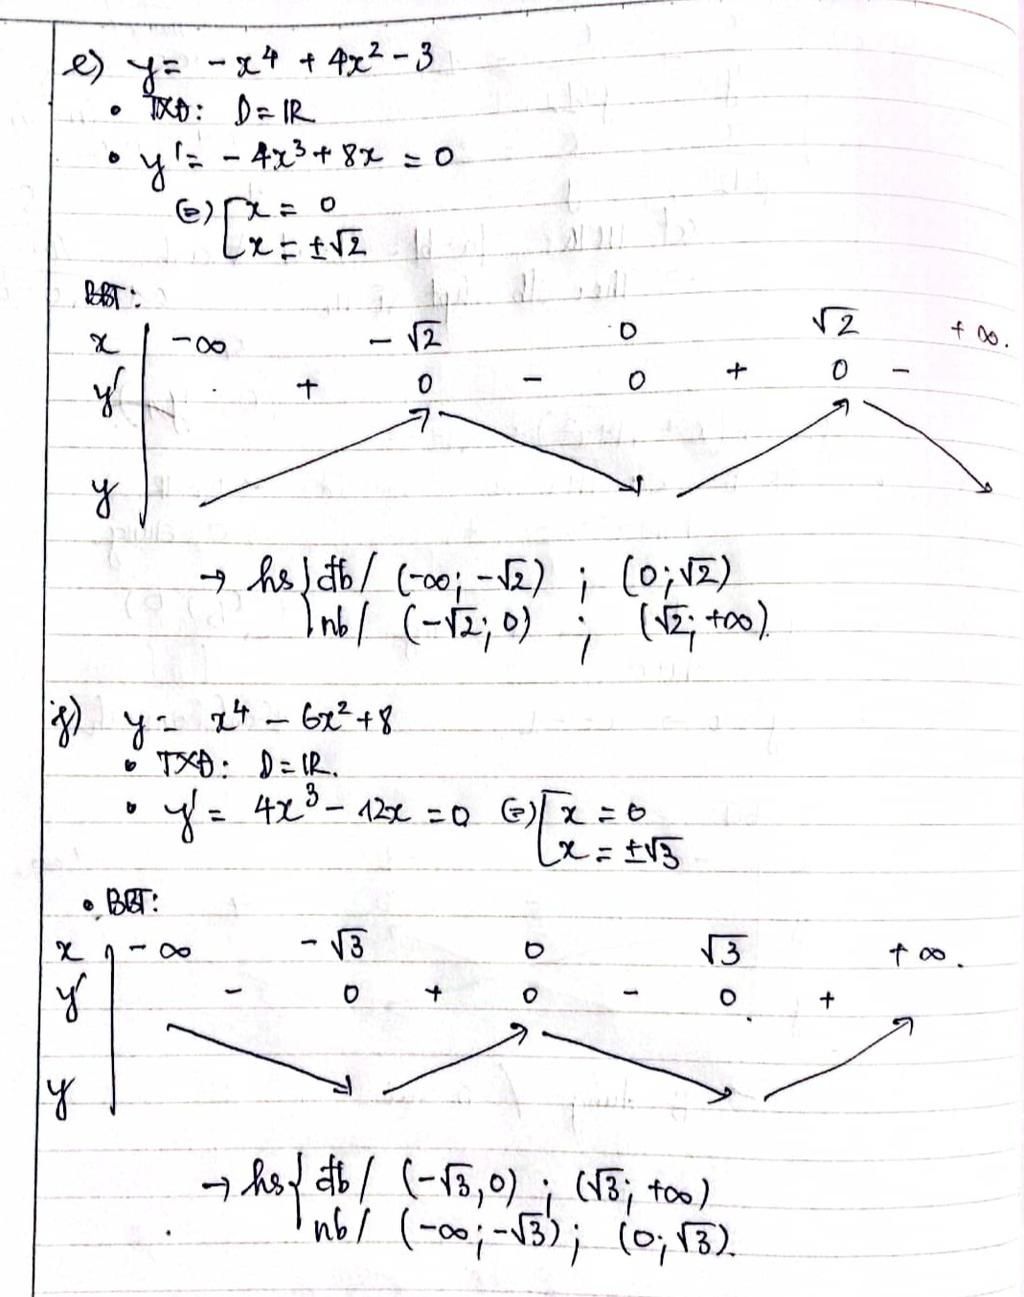 e) y = -x⁴ + 4x² - 3
• TXĐ: D = ℝ
• y' = -4x³ + 8x = 0
⇔ [ x = 0
x = ±√2
BBT:
x -∞ -√2 0 √2 +∞.
y' + 0 - 0 + 0 -
y
→ hs { đb / (-∞; -√2) ; (0; √2)
nb / (-√2; 0) ; (√2; +∞).
f) y = x⁴ - 6x² + 8
• TXĐ: D = ℝ.
• y' = 4x³ - 12x = 0 ⇔ [ x = 0
x = ±√3
• BBT:
x -∞ -√3 0 √3 +∞.
y' - 0 + 0 - 0 +
y
→ hs { đb / (-√3, 0) ; (√3; +∞)
nb / (-∞; -√3) ; (0; √3).